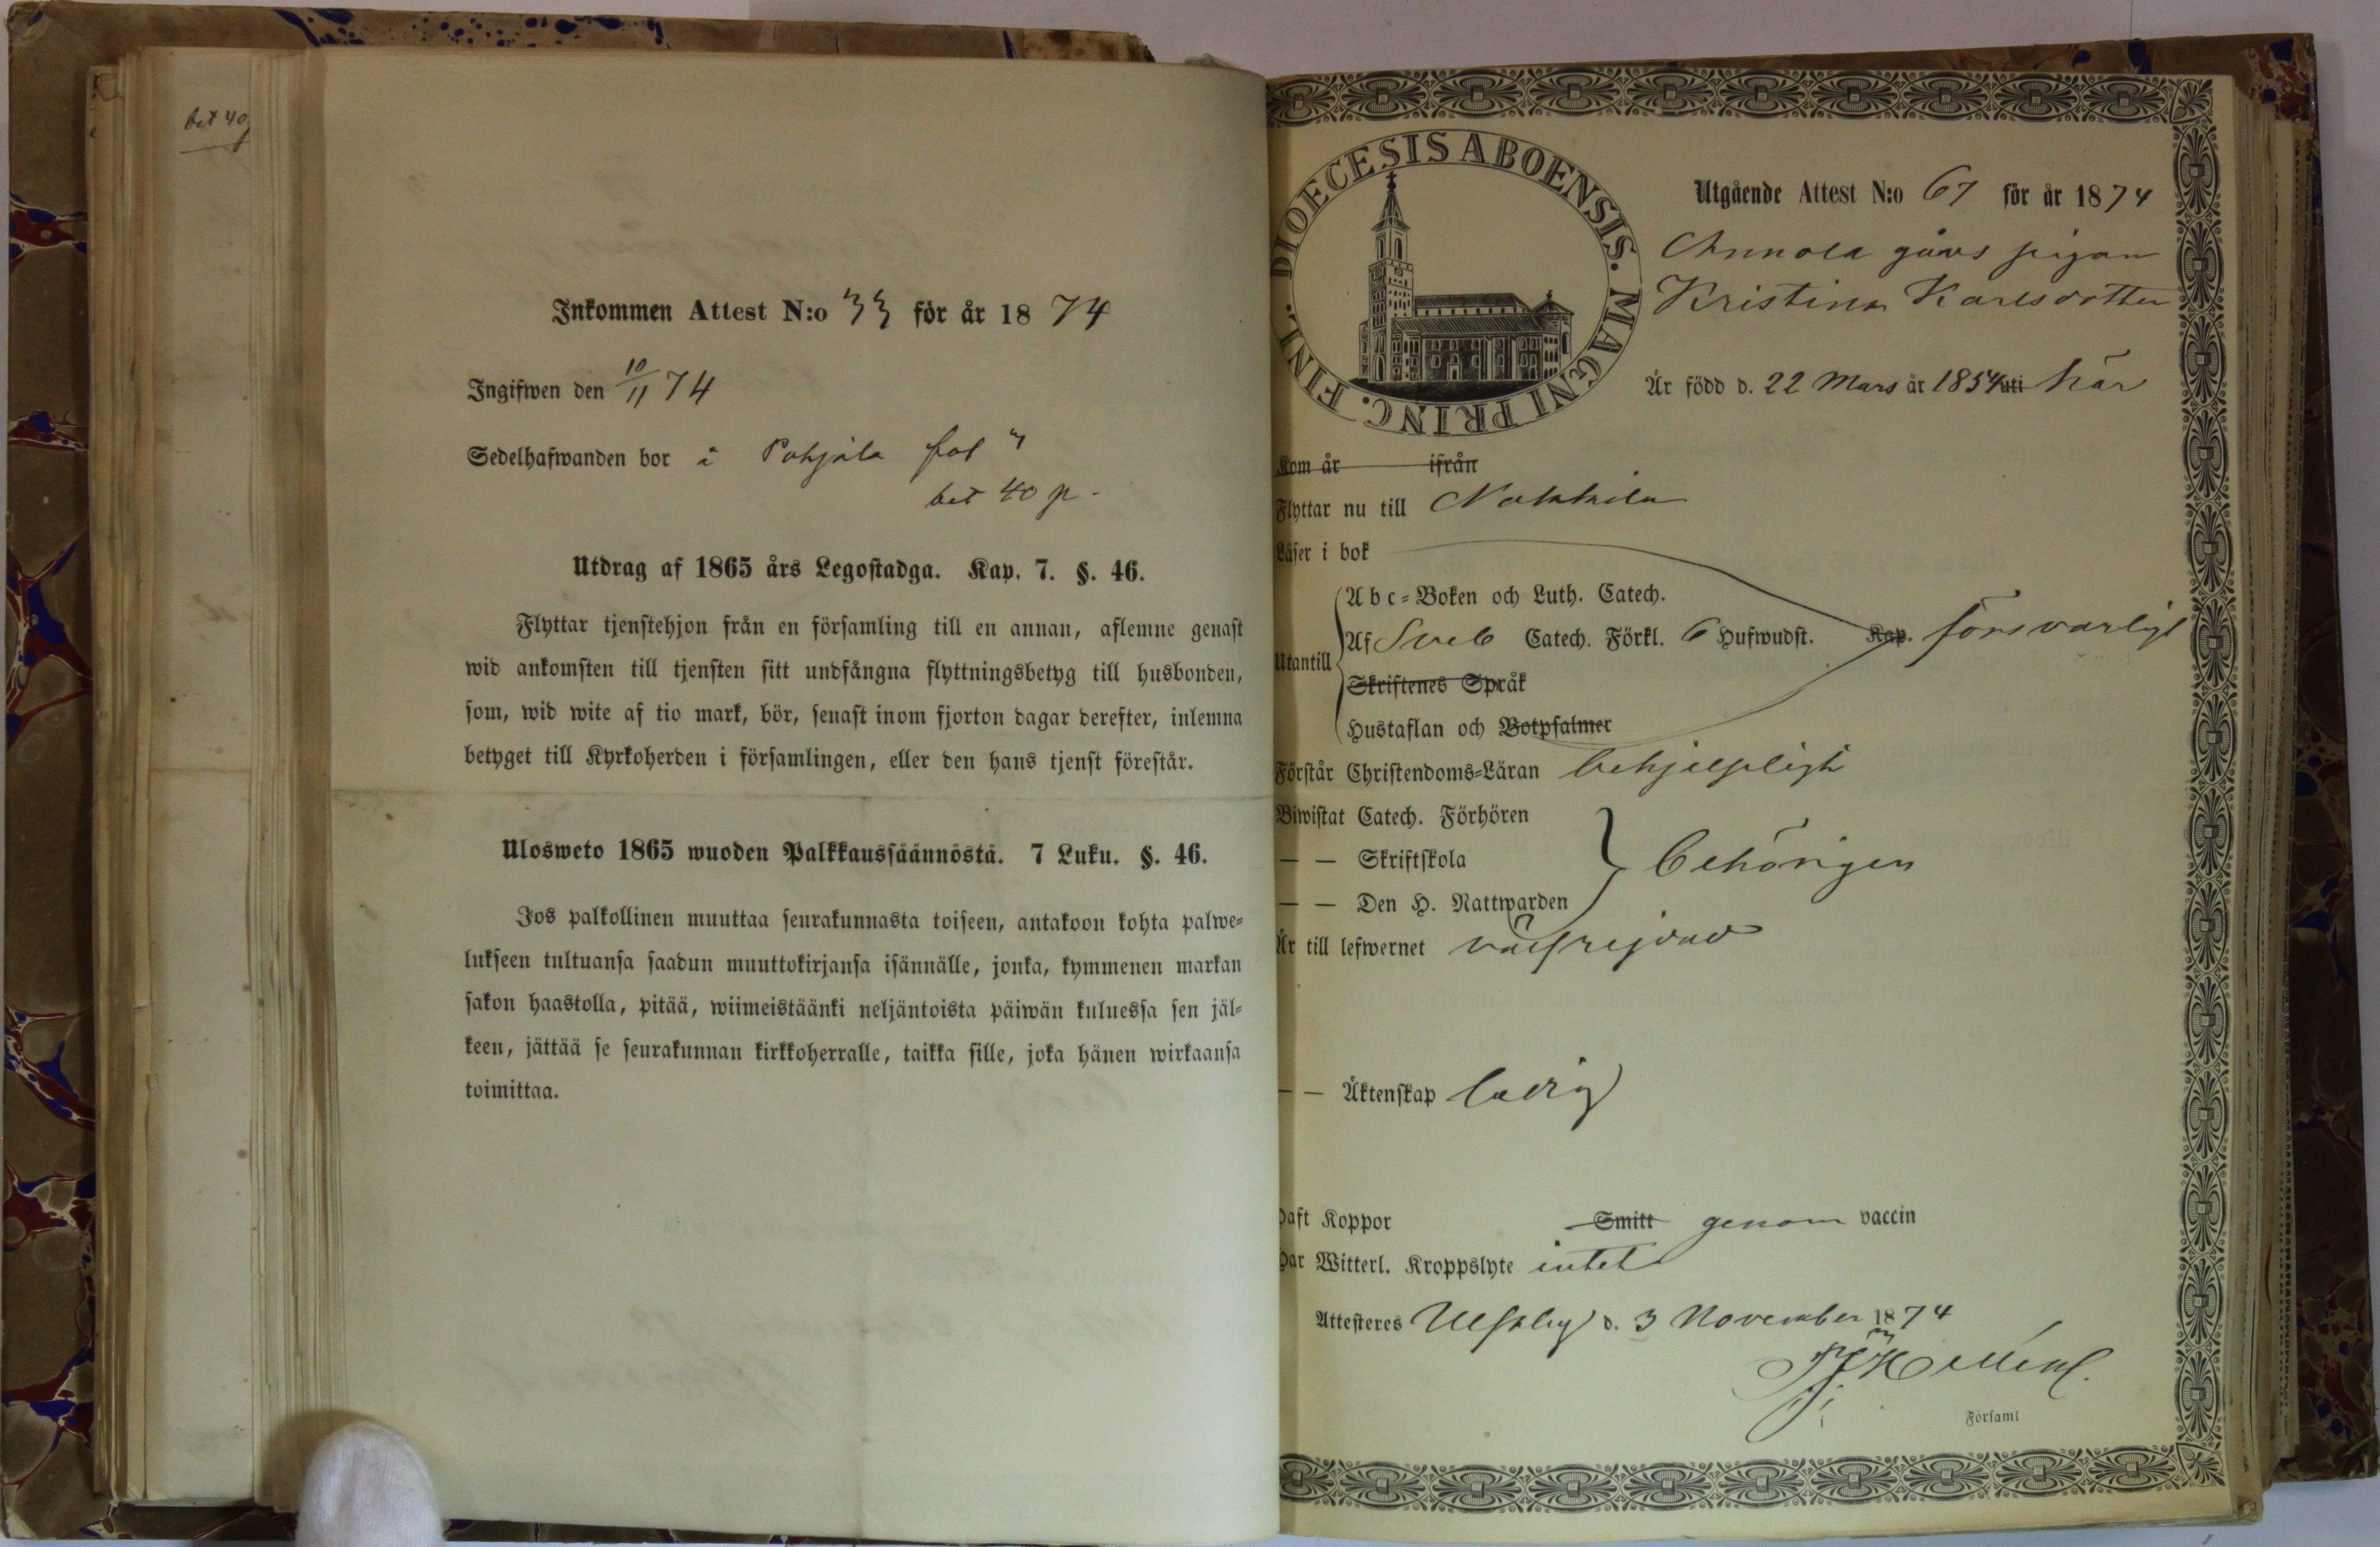 bet 40
Inkommen Attest N:o 33 för år 1874
Ingifwen den 10/11 74
Sedelhafwanden bor i Pohjala fol "
bet 40 p.
Utdrag af 1865 års Legostadga. Kap. 7. §. 46.
Flyttar tjenstehjon från en församling till en annan, aflemne genast
wid ankomsten till tjensten sitt undfångna flyttningsbetyg till husbonden,
som, wid wite af tio mark, bör, senast inom fjorton dagar derefter, inlemna
betyget till Kyrkoherden i församlingen, eller den hans tjenst förestår.
Ulosweto 1865 wuoden Palkkaussäännöstä. 7 Luku. §. 46.
Jos palkollinen muuttaa seurakunnasta toiseen, antakoon kohta palwe=
lukseen tultuansa saadun muuttokirjansa isännälle, jonka, kymmenen markan
sakon haastolla, pitää, wiimeistäänki neljäntoista päiwän kuluessa sen jäl=
keen, jättää se seurakunnan kirkkoherralle, taikka sille, joka hänen wirkaansa
toimittaa.
DIOECESIS ABOENSIS. MAGNI PRINC. FINL.
Utgående Attest N:o 67 för år 1874
Annola gårds pigan
Kristina Karlsdotter
Är född d. 22 Mars år 1854 uti här
Kom år ifrån
Flyttar nu till Nakkila
Läser i bok
Abc=Boken och Luth. Catech.
Utantill Af Sveb Catech. Förkl. 6 Hufwudst. Kap. försvarligt
Skriftenes Språk
Hustaflan och Botpsalmer
Förstår Christendoms=Läran behjelpligt
Biwistat Catech. Förhören
— — Skriftskola behörigen
— — Den H. Nattwarden
Är till lefwernet välfrejdad
— — Äktenskap ledig
Haft Koppor Smitt genom vaccin
Har Witterl. Kroppslyte intet
Attesteres Ulfsby d. 3 November 1874
i Församl